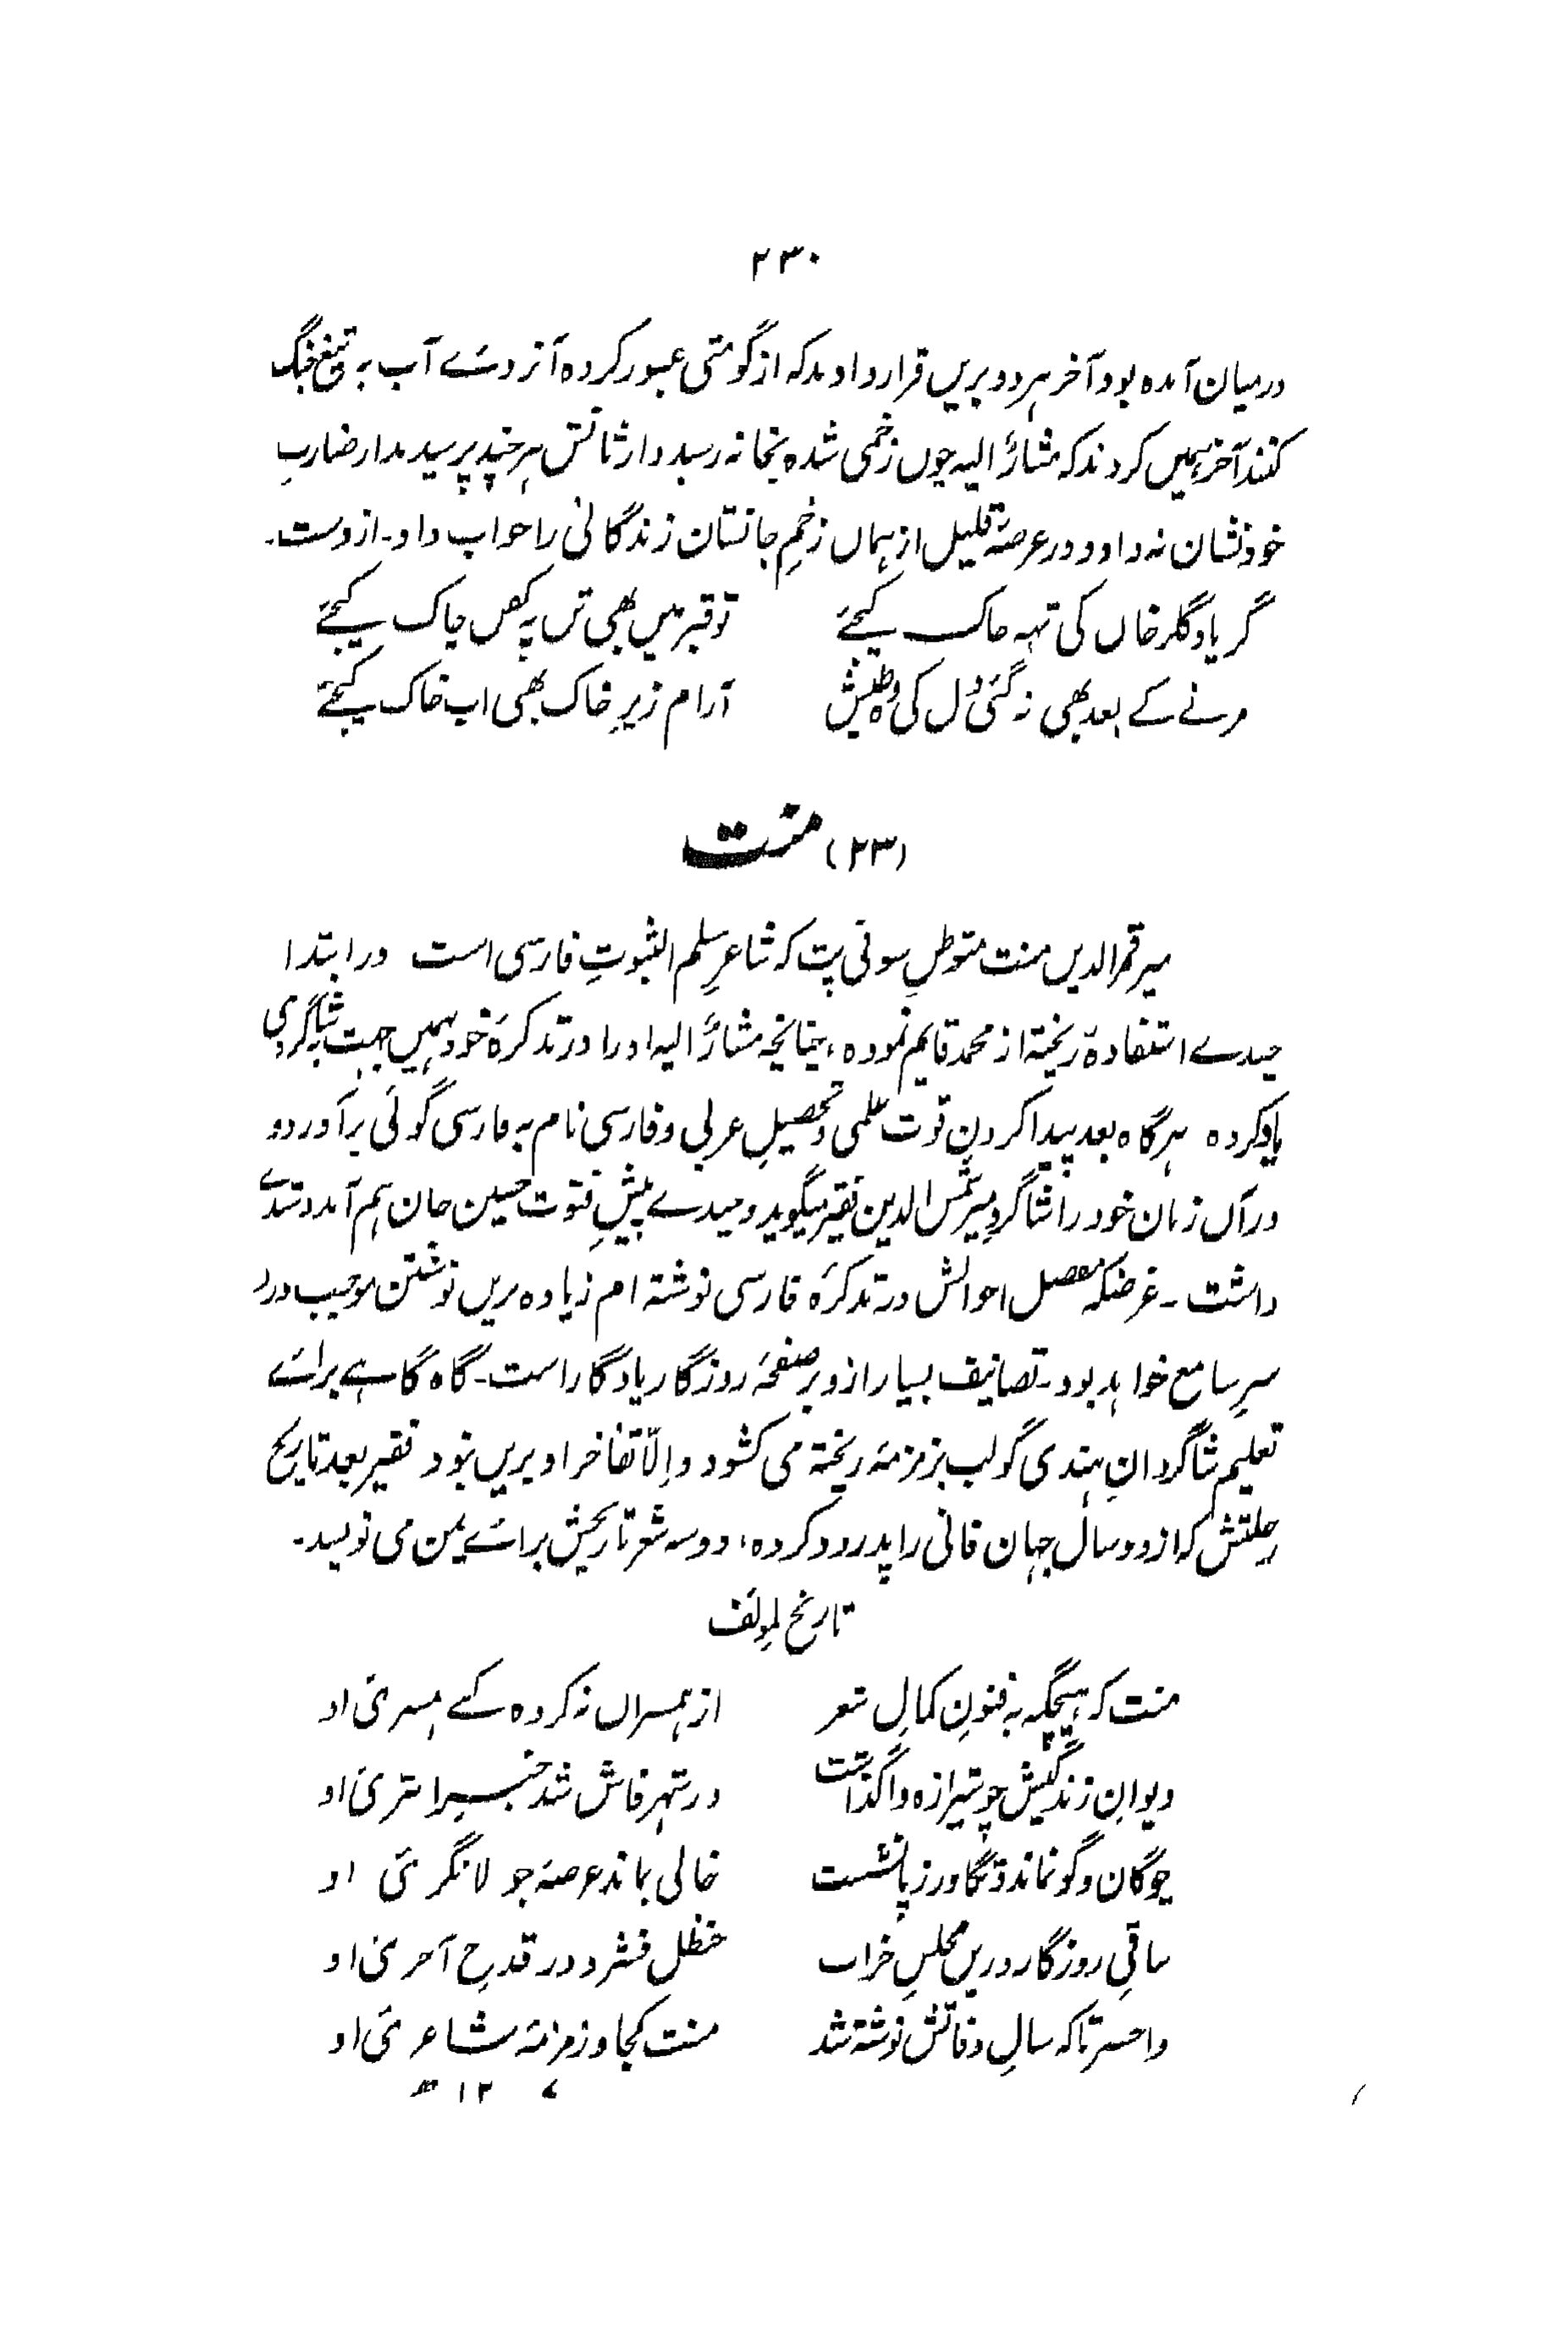 ۲۳۰
درمیان آمده بود آخر ہر دو بریں قرار دادند که از گومتی عبور کرده آنروئے آب به تیغ جنگ
کنند آخر ہمیں کردند که مشارٌ الیه چوں زخمی شده بخانه رسید وارثانش ہر چند پرسیدند از ضاربِ
خود نشان نه داد و در عرصۂ قلیل از ہماں زخمِ جانستان زندگانی را جواب داد۔ ازوست۔
گر یادِ گلرخاں کی تہہ خاک کیجئے
تو قبر میں بھی تن پہ کفن چاک کیجئے
مرنے کے بعد بھی نہ گئی دل کی وہ طپش
آرام زیرِ خاک بھی اب خاک کیجئے
(۲۳) منت
میر قمر الدین منت متوطنِ سونی پت که شاعرِ مسلم الثبوتِ فارسی است در ابتدا
چندے استفادۂ ریخته از محمد قایم نموده، چنانچه مشارٌ الیه او را در تذکرۂ خود بہمیں جہت بشاگردی
یاد کرده ہرگاه بعد پیدا کردنِ قوت علمی و تحصیلِ عربی و فارسی نام به فارسی گوئی برآورد و
درآں زمان خود را شاگردِ میر شمس الدین فقیر میگوید و چندے پیشِ فتوت حسین خان ہم آمد و شدے
داشت۔ غرضکه مفصل احوالش در تذکرۂ فارسی نوشته ام زیاده بریں نوشتن موجب درد
سرِ سامع خواہد بود۔ تصانیف بسیار ازو بر صفحۂ روزگار یادگار است۔ گاه گاہے برائے
تعلیم شاگردانِ ہندی گو لب بزمزمۂ ریخته می کشود و اِلّا تفاخر او بریں نبود فقیر بعد تاریخ
رحلتش که از دو سال جہان فانی را پدرود کرده، دو سه شعر تاریخش برائے یمن می نویسد۔
تاریخ لمؤلف
منت که ہیچگه به فنونِ کمالِ شعر
از ہمسراں نه کرده کسے ہمسرئ او
دیوانِ زندگیش چو شیرازه واگذاشت
در شہر فاش شد خبرِ ابتریِٔ او
چوگان و گو نماند و تگاور ز پا نشست
خالی بماند عرصۂ جولانگریِٔ او
ساقیِ روزگار دریں مجلسِ خراب
حنظل فشرد در قدحِ آخریِٔ او
واحسرتا که سالِ وفاتش نوشته شد
منت کجا و زمزمۂ شاعریِٔ او
۱۲ ۷ ھ